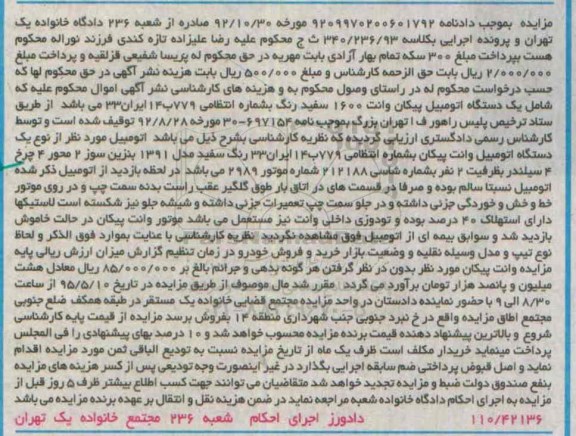 مزایده بموجب دادنامه ۹۲۰۹۹۷۰۲۰۰۶۰۱۷۹۲ مورخه ۹۲/۱۰/۳۰ صادره از شعبه ۲۳۶ دادگاه خانواده یک
تهران و پرونده اجرایی بکلاسه ۳۴۰/۲۳۶/۹۳ ث ج محکوم علیه رضا علیزاده تازه کندی فرزند نوراله محکوم
هست بپرداخت مبلغ ۳۰۰ سکه تمام بهار آزادی بابت مهریه در حق محکوم له پریسا شفیعی قزلقیه و پرداخت مبلغ
۲/۰۰۰/۰۰۰ ریال بابت حق الزحمه کارشناس و مبلغ ۵۰۰/۰۰۰ ریال بابت هزینه نشر آگهی در حق محکوم لها که
حسب درخواست محکوم له در راستای وصول محکوم به و هزینه های کارشناسی نشر آگهی اموال محکوم علیه که
شامل یک دستگاه اتومبیل پیکان وانت ۱۶۰۰ سفید رنگ بشماره انتظامی ۷۷۹ب۱۴ایران۳۳ می باشد از طریق
ستاد ترخیص پلیس راهور ف ا تهران بزرگ بموجب نامه ۶۹۷۱۵۴-۳۰ مورخه ۹۲/۸/۲۸ توقیف شده است و توسط
کارشناس رسمی دادگستری ارزیابی گردیده که نظریه کارشناسی بشرح ذیل می باشد اتومبیل مورد نظر از نوع یک
دستگاه اتومبیل وانت پیکان بشماره انتظامی ۷۷۹ب۱۴ایران۳۳ رنگ سفید مدل ۱۳۹۱ بنزین سوز ۲ محور ۴ چرخ
۴ سیلندر بظرفیت ۲ نفر بشماره شاسی ۲۱۲۱۸۸ شماره موتور ۲۹۸۹ می باشد در لحظه بازدید از اتومبیل ذکر شده
اتومبیل نسبتا سالم بوده و صرفا در قسمت های در اتاق بار طوق گلگیر عقب راست بدنه سمت چپ و در روی موتور
خط و خش و خوردگی جزئی داشته و در جلو سمت چپ تعمیرات جزئی داشته و شیشه جلو نیز شکسته است لاستیکها
دارای استهلاک ۴۰ درصد بوده و تودوزی داخلی وانت نیز مستعمل می باشد موتور وانت پیکان در حالت خاموش
بازدید شد و سوابق بیمه ای از اتومبیل فوق مشاهده نگردید نظریه کارشناسی با عنایت بموارد فوق الذکر و لحاظ
نوع تیپ و مدل وسیله نقلیه و وضعیت بازار خرید و فروش خودرو در زمان تنظیم گزارش میزان ارزش ریالی پایه
مزایده وانت پیکان مورد نظر بدون در نظر گرفتن هر گونه بدهی و جرائم بالغ بر ۸۵/۰۰۰/۰۰۰ ریال معادل هشت
میلیون و پانصد هزار تومان برآورد می گردد مقرر شد مال موصوف از طریق مزایده در تاریخ ۹۵/۵/۱۰ از ساعت
۸/۳۰ الی ۹ با حضور نماینده دادستان در واحد مزایده مجتمع قضایی خانواده یک مستقر در طبقه همکف ضلع جنوبی
مجتمع اطاق مزایده واقع در خ نبرد جنوبی جنب شهرداری منطقه ۱۴ بفروش برسد مزایده از قیمت پایه کارشناسی
شروع و بالاترین پیشنهاد دهنده قیمت برنده مزایده محسوب خواهد شد و ۱۰ درصد بهای پیشنهادی را فی المجلس
پرداخت مینماید خریدار مکلف است ظرف یک ماه از تاریخ مزایده نسبت به تودیع الباقی ثمن مورد مزایده اقدام
نماید و اصل قبوض پرداختی ضم سابقه اجرایی بگذارد در غیر اینصورت وجه تودیعی پس از کسر هزینه های مزایده
بنفع صندوق دولت ضبط و مزایده تجدید خواهد شد متقاضیان می توانند جهت کسب اطلاع بیشتر ظرف ۵ روز قبل از
مزایده به اجرای احکام دادگاه خانواده شعبه مراجعه نماید در ضمن هزینه نقل و انتقال بر عهده برنده مزایده می باشد
۱۱۰/۴۲۱۳۶ دادورز اجرای احکام شعبه ۲۳۶ مجتمع خانواده یک تهران